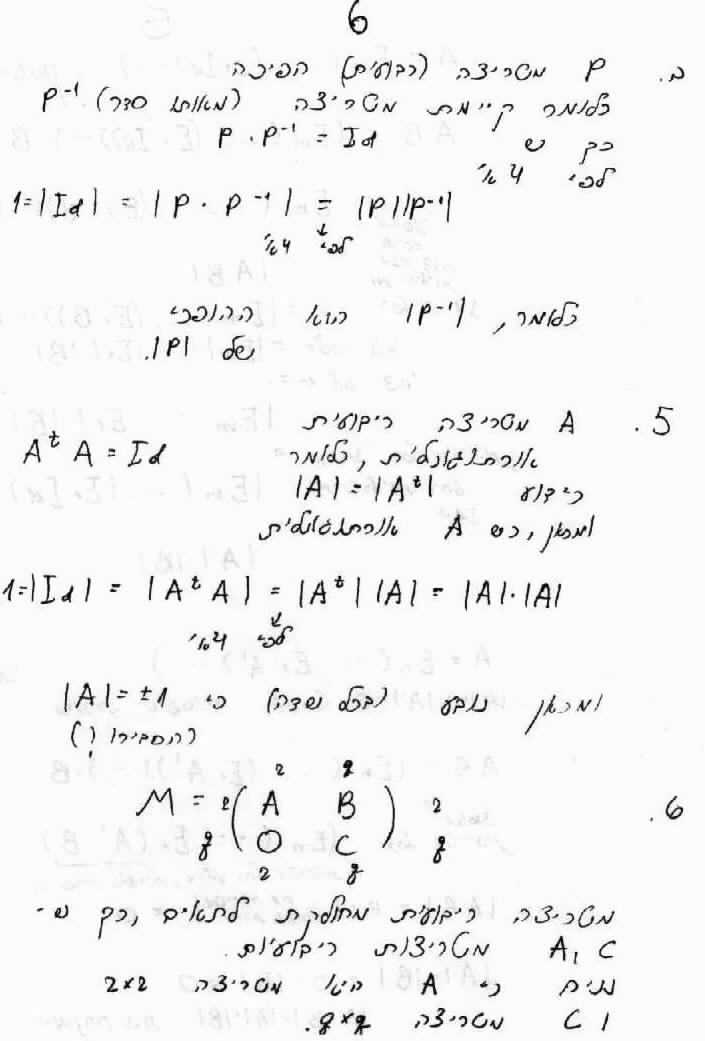 6
ב. P מטריצה (רבועית) הפיכה
כלומר קיימת מטריצה (מאותו סדר) P⁻¹
כך ש P · P⁻¹ = Id
לפי 4 א'
1=|Id| = |P · P⁻¹| = |P||P⁻¹|
לפי 4א'
כלומר, |P⁻¹| הוא ההופכי
של |P|.
5. A מטריצה ריבועית
אורתוגונלית, כלומר AᵗA = Id
כידוע |A|=|Aᵗ|
ומכאן, כש A אורתוגונלית
1=|Id| = |AᵗA| = |Aᵗ||A| = |A|·|A|
לפי 4א'
ומכאן נובע (בכל שדה) כי |A|=±1
(הסבירו!)
2 q
6. M = 2( A B ) 2
q ( O C ) q
2 q
מטריצה ריבועית מחולקת לתאים, כך ש-
A, C מטריצות ריבועיות.
נניח כי A היא מטריצה 2×2
ו C מטריצה q×q.